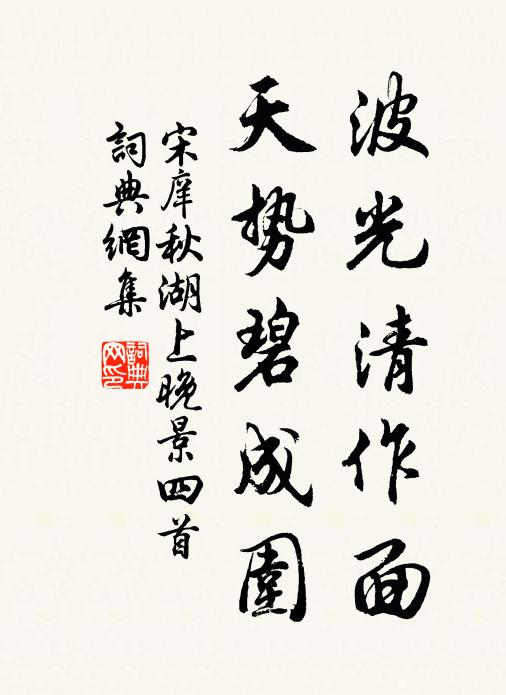 波光清作面
天势碧成圍
宋庠秋湖上晚景四首
詞典網集
詞典
网印